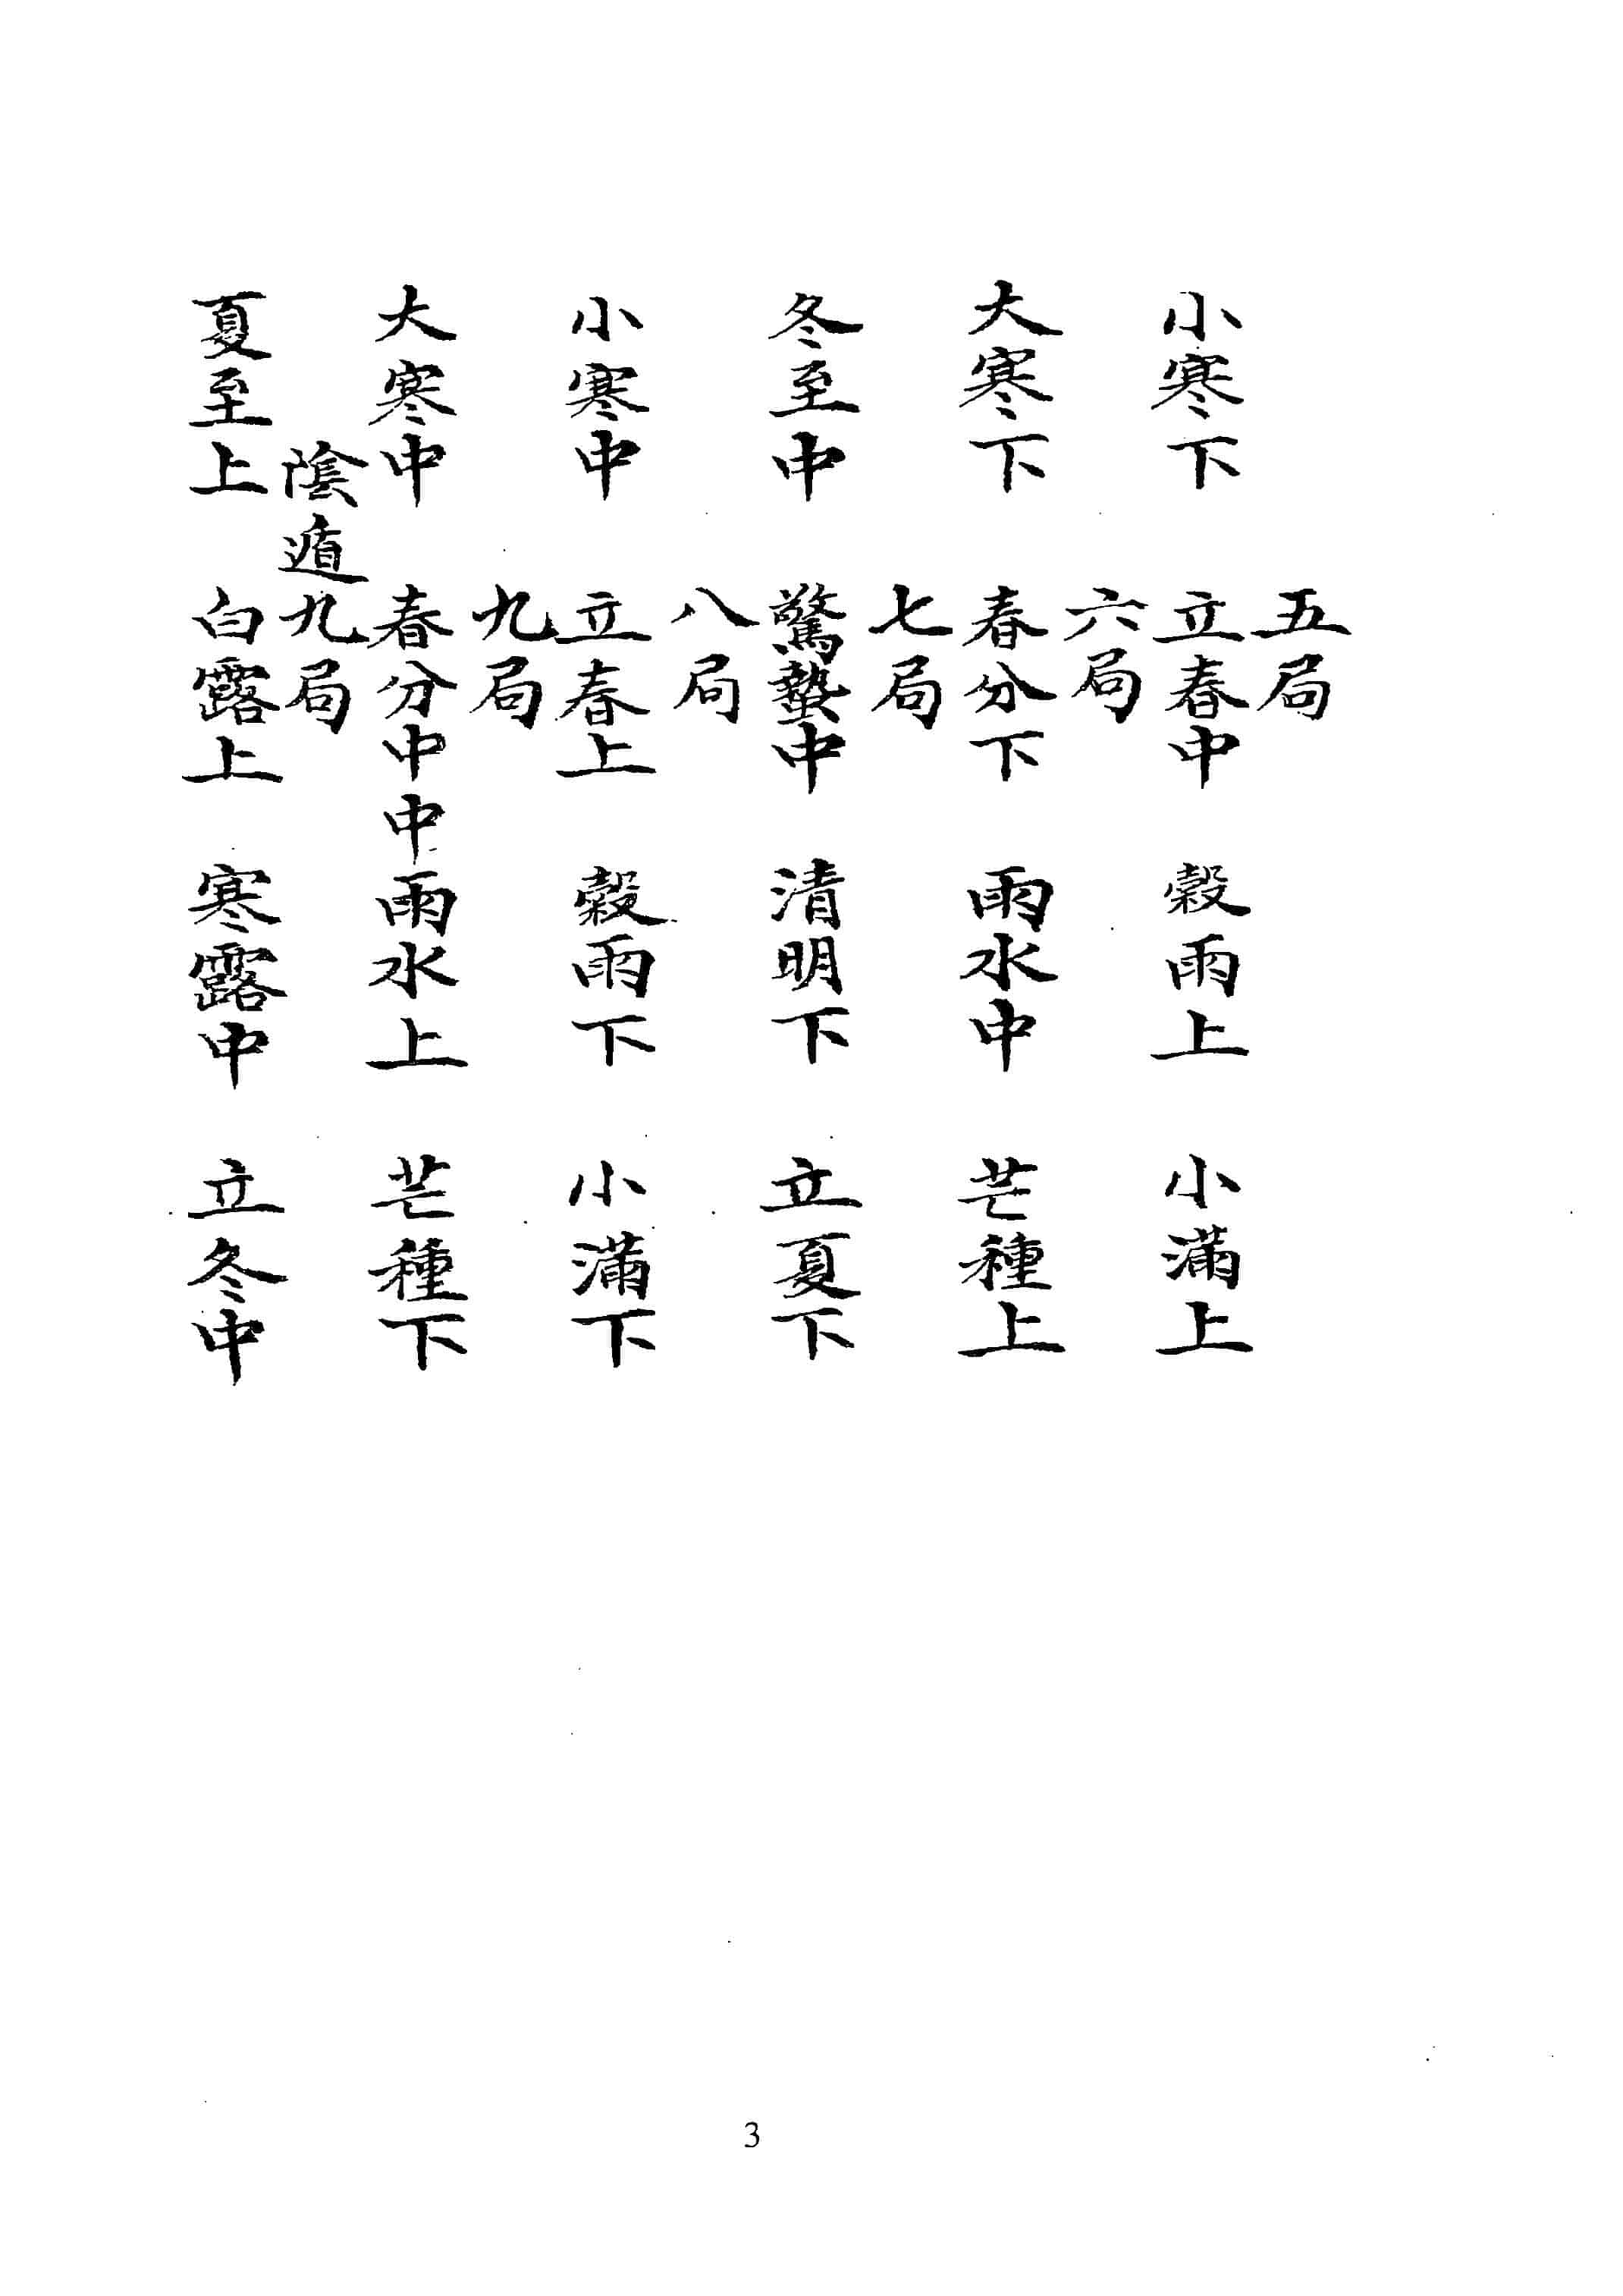 五局
小寒下 立春中 穀雨上 小滿上
六局
大寒下 春分下 雨水中 芒種上
七局
冬至中 驚蟄中 清明下 立夏下
八局
小寒中 立春上 穀雨下 小滿下
九局
大寒中 春分中中雨水上 芒種下
陰遁九局
夏至上 白露上 寒露中 立冬中
3